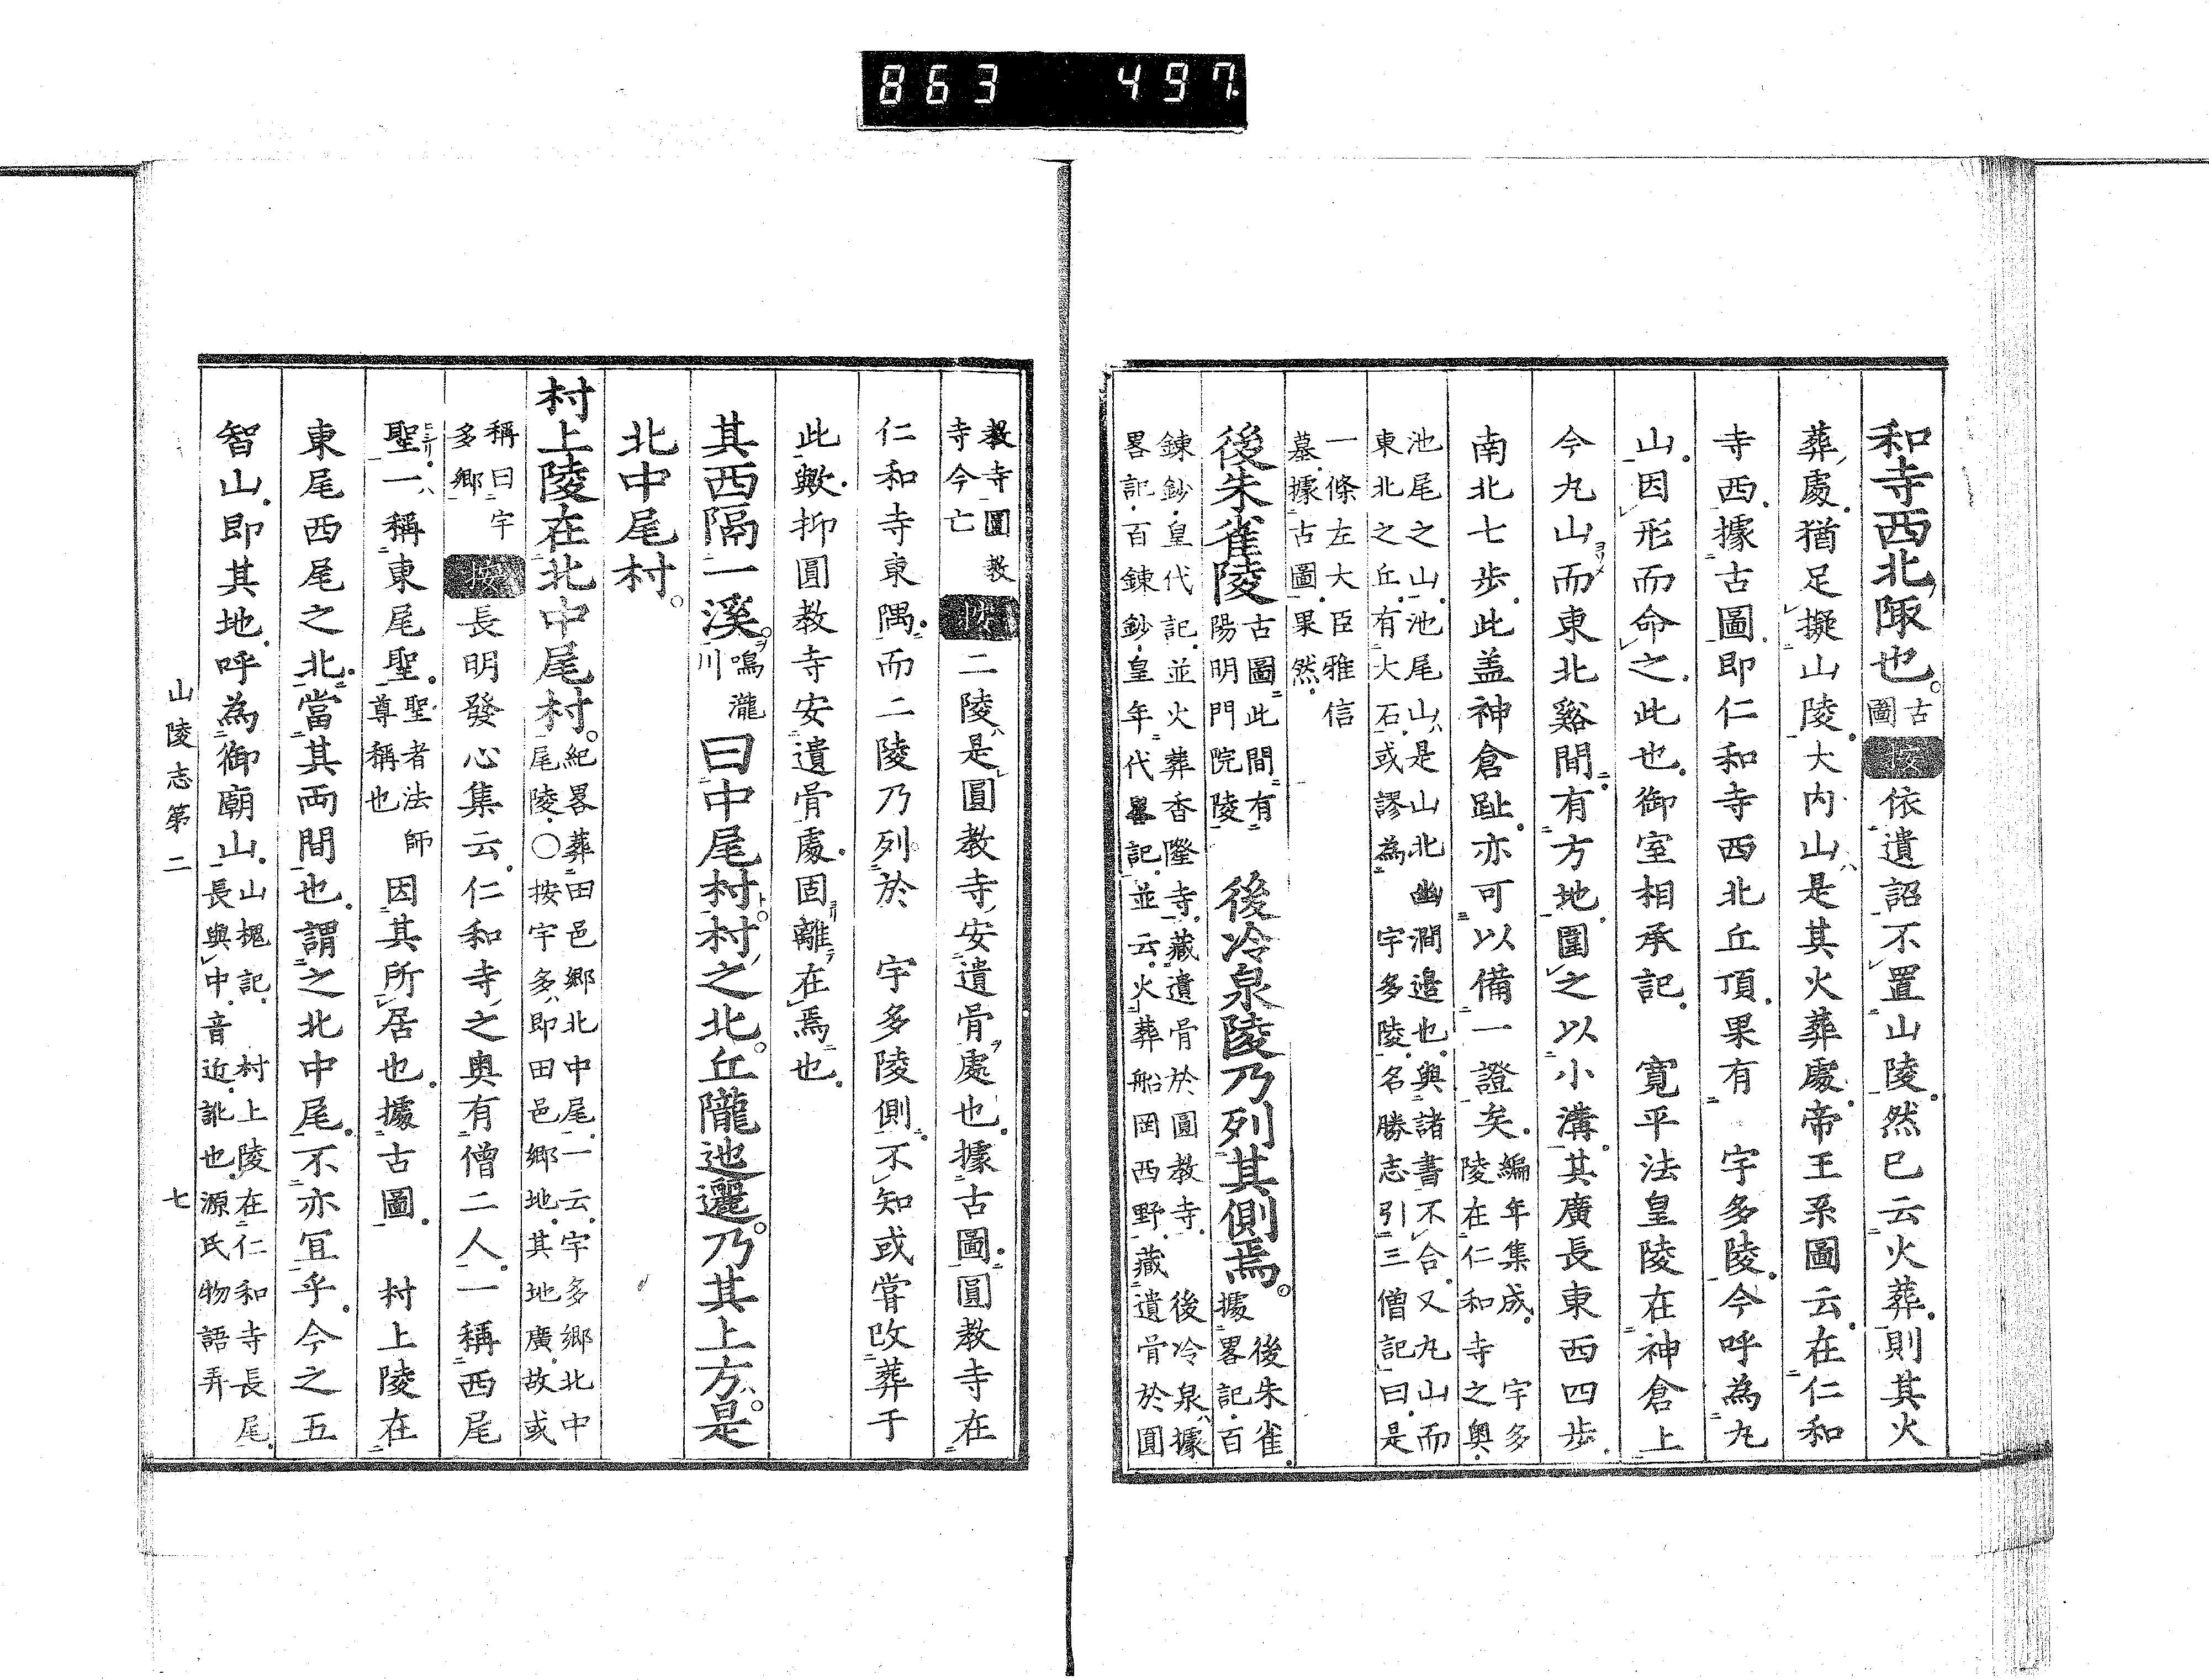 863 497
和寺西北陬也。古圖按依遺詔不置山陵然已云火葬則其火
葬處猶足擬山陵大内山是其火葬處帝王系圖云在仁和
寺西據古圖即仁和寺西北丘頂果有　宇多陵今呼為九
山因形而命之此也御室相承記　寛平法皇陵在神倉上
今九山而東北谿間有方地圍之以小溝其廣長東西四步
南北七步此盖神倉趾亦可以備一證矣編年集成　宇多
陵在仁和寺之奥
池尾之山池尾山是山北幽澗邉也與諸書不合又九山而
東北之丘有大石或謬為　宇多陵名勝志引三僧記曰是
一條左大臣雅信
墓據古圖果然
後朱雀陵古圖此間有
陽明門院陵　後冷泉陵乃列其側焉。後朱雀
據畧記百
鍊鈔皇代記並火葬香隆寺藏遺骨於圓教寺　後冷泉據
畧記百鍊鈔皇年代畧記並云火葬船岡西野藏遺骨於圓
教寺圓教
寺今亡按二陵是圓教寺安遺骨處也據古圖圓教寺在
仁和寺東隅而二陵乃列於　宇多陵側不知或嘗改葬于
此歟抑圓教寺安遺骨處固離在焉也
其西隔一溪。鳴瀧
川曰中尾村。村之北。丘隴迆邐。乃其上方。是
北中尾村。
村上陵在北中尾村。紀畧葬田邑郷北中尾一云宇多郷北中
尾陵〇按宇多即田邑郷地其地廣故或
稱曰宇
多郷按長明發心集云仁和寺之奥有僧二人一稱西尾
聖一稱東尾聖聖者法師
尊稱也因其所居也據古圖　村上陵在
東尾西尾之北當其両間也謂之北中尾不亦宜乎今之五
智山即其地呼為御廟山山槐記　村上陵在仁和寺長尾
長與中音近訛也源氏物語弄
山陵志第二　七